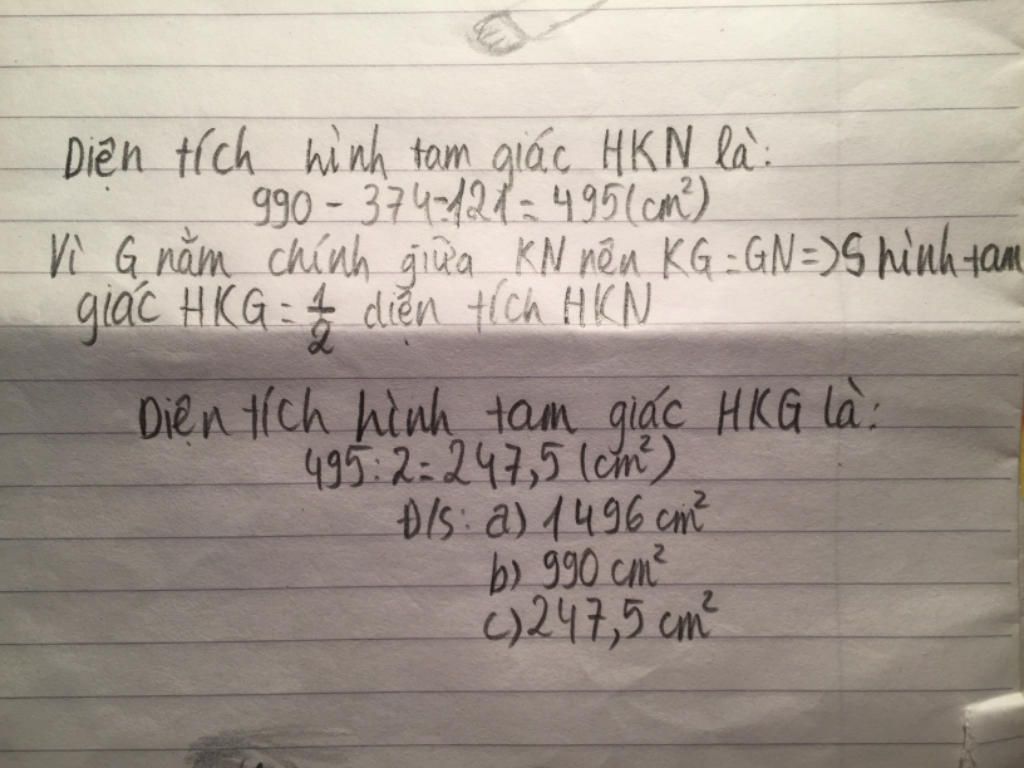 Diện tích hình tam giác HKN là:
990 - 374-121 = 495(cm²)
Vì G nằm chính giữa KN nên KG = GN => S hình tam
giác HKG = 1/2 diện tích HKN
Diện tích hình tam giác HKG là:
495 : 2 = 247,5 (cm²)
Đ/s: a) 1496 cm²
b) 990 cm²
c) 247,5 cm²